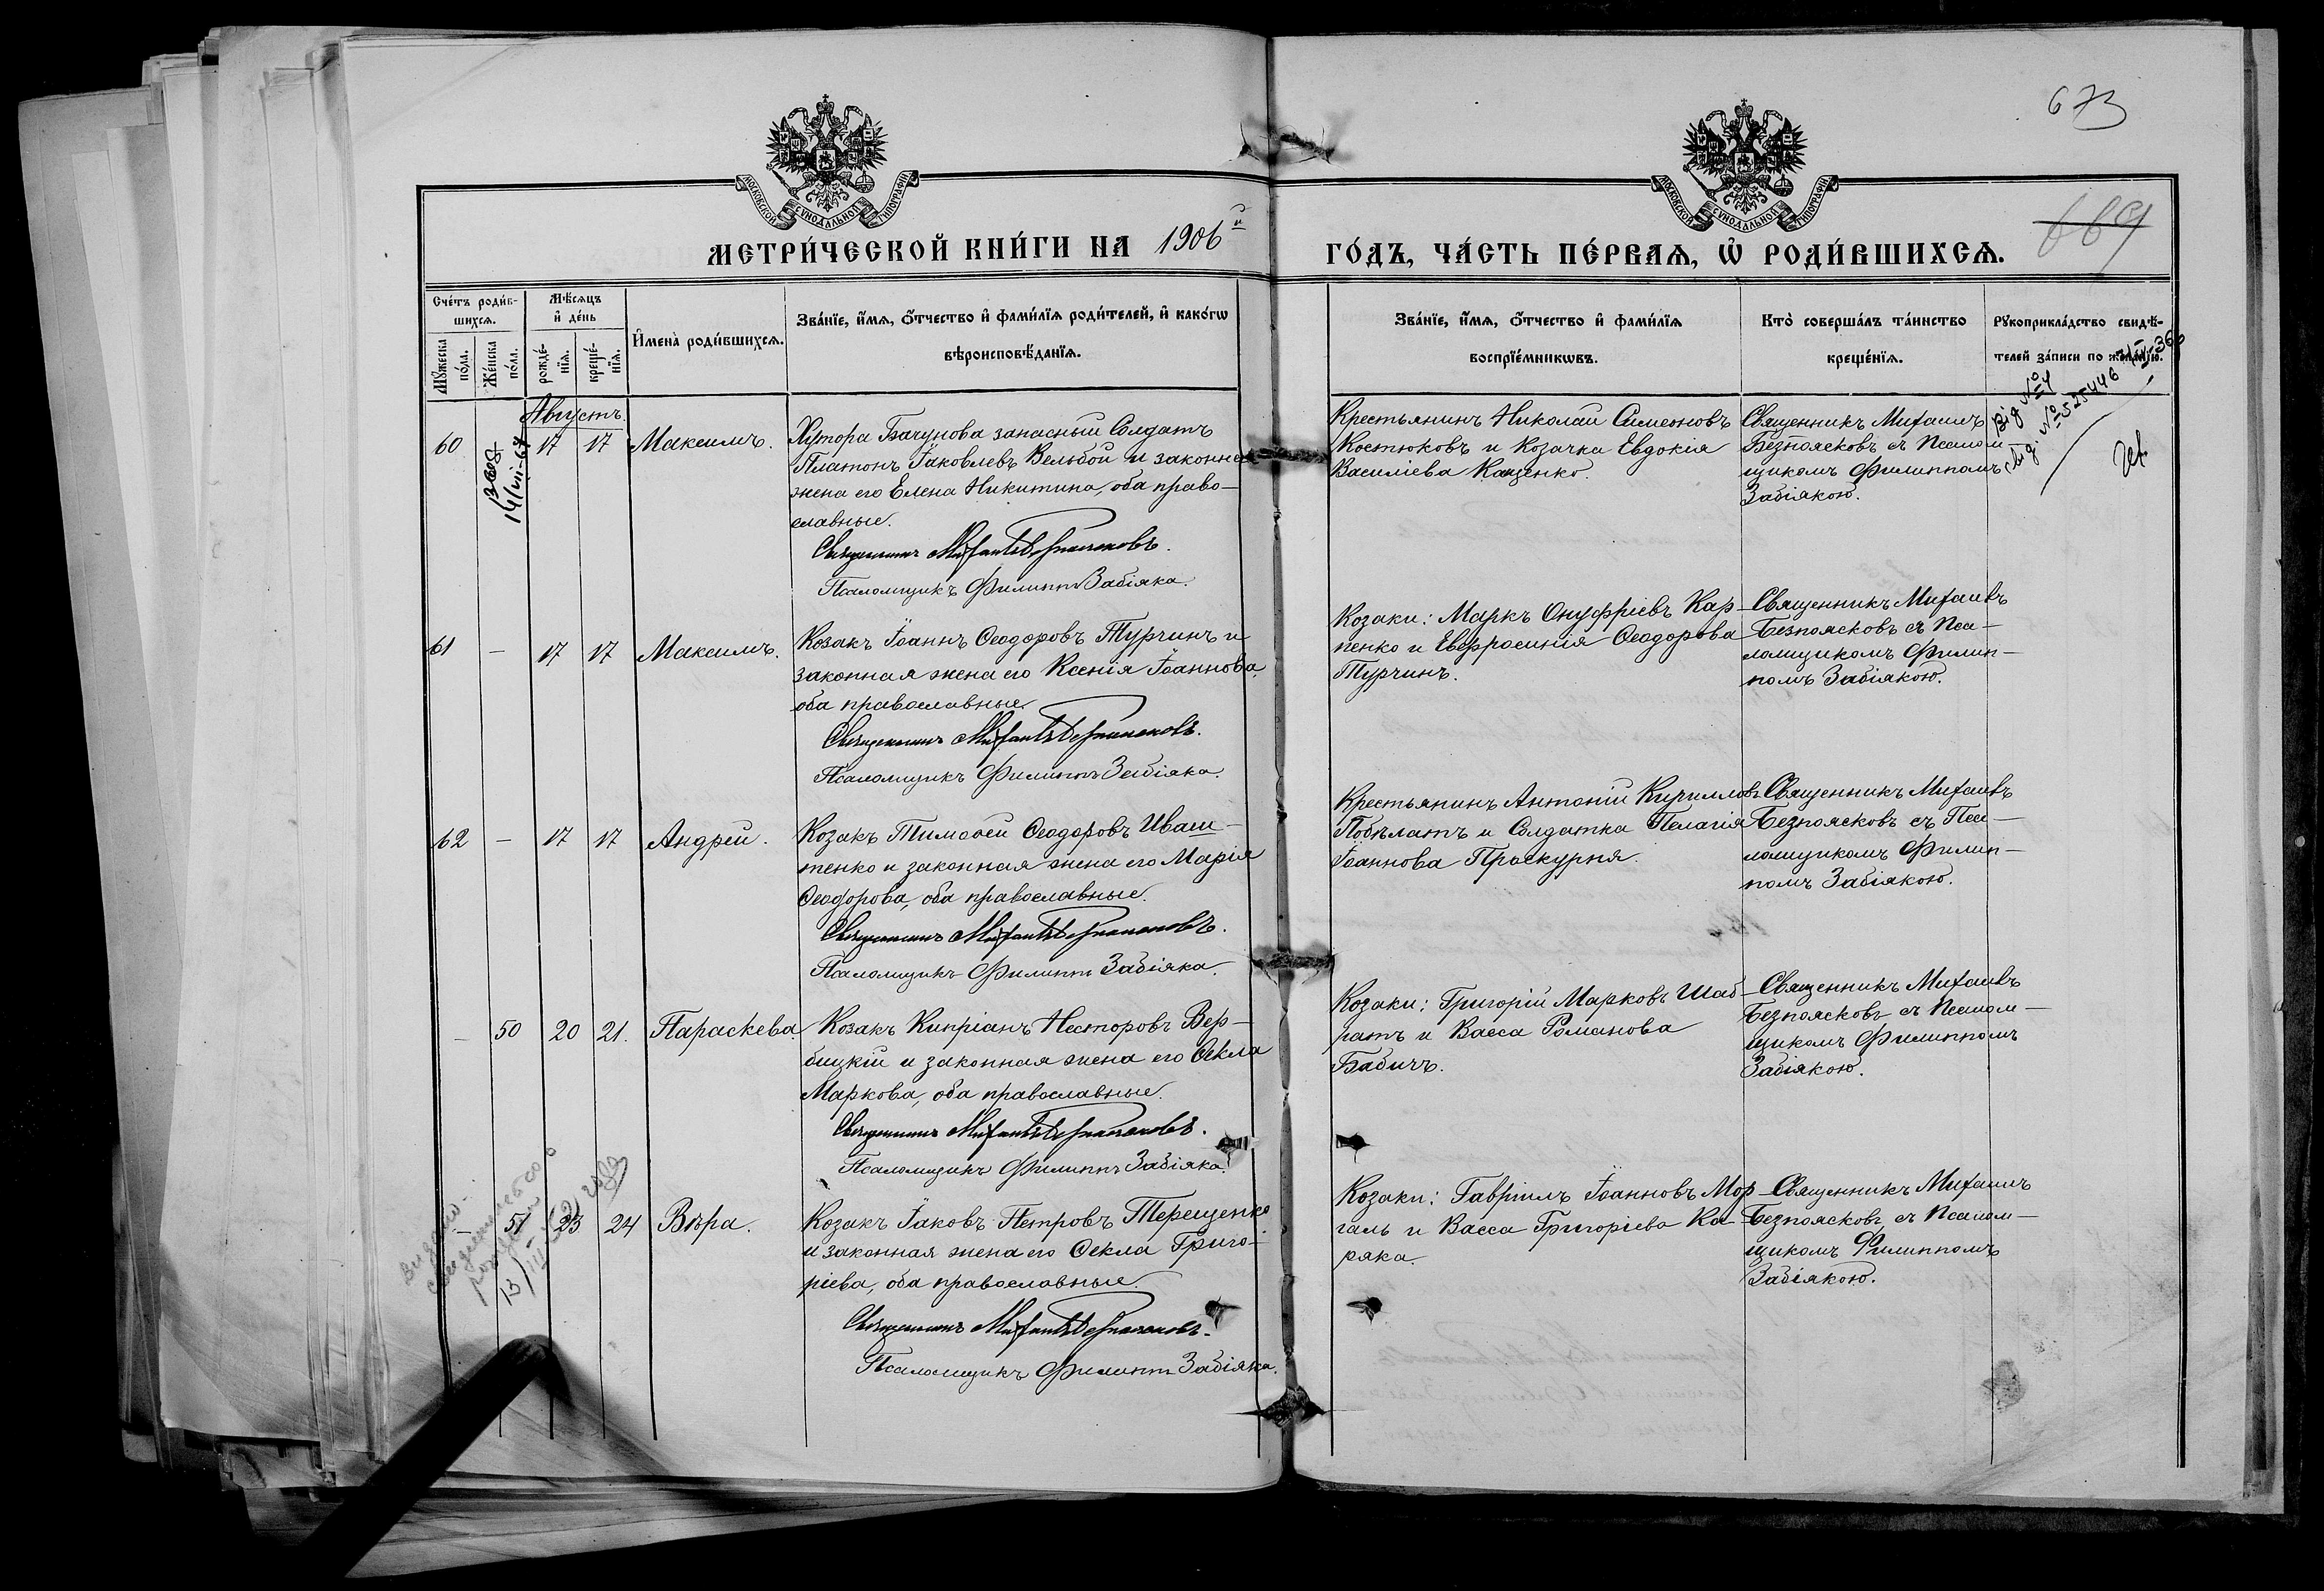 673
МОСКОВСКОЙ СѴНОДАЛЬНОЙ ТИПОГРАФІИ
МОСКОВСКОЙ СѴНОДАЛЬНОЙ ТИПОГРАФІИ
МЕТРИ́ЧЕСКОЙ КНИ́ГИ НА 1906й
ГО́ДЪ, ЧА́СТЬ ПЕ́РВАѦ, Ѡ҆ РОДИ́ВШИХСѦ.
669
Сче́тъ роди́в-
шихсѧ.
Мꙋ́жеска по́ла.
Же́нска по́ла.
Мѣ́сѧцъ
и҆ де́нь
рожде́-
нїѧ.
креще́-
нїѧ.
И҆мена̀ роди́вшихсѧ.
Зва́нїе, и҆́мѧ, ѻ҆́тчество и҆ фами́лїѧ роди́телей, и҆ како́гѡ
вѣроисповѣ́данїѧ.
Зва́нїе, и҆́мѧ, ѻ҆́тчество и҆ фами́лїѧ
воспрїе́мникѡвъ.
Кто̀ соверша́лъ та́инство
креще́нїѧ.
Рꙋкоприкла́дство свидѣ́-
телей за́писи по жела́нїю.
Августъ.
60
14/VII-67
17
17
Максимъ.
Хутора Бачунова запасный Солдатъ
Платонъ Іаковлевъ Вельбой и законная
жена его Елена Никитина, оба право-
славные.
Священникъ Михаилъ Безпоясковъ.
Псаломщикъ Филиппъ Забіяка.
Крестьянинъ Николай Симеоновъ
Костюковъ и Козачка Евдокія
Василіева Кащенко.
Священникъ Михаилъ
Безпоясковъ съ Псалом-
щикомъ Филиппомъ
Забіякою.
61
-
17
17
Максимъ.
Козакъ Іоаннъ Ѳеодоровъ Турчинъ и
законная жена его Ксенія Іоаннова,
оба православные.
Священникъ Михаилъ Безпоясковъ.
Псаломщикъ Филиппъ Забіяка.
Козаки: Маркъ Онуфріевъ Кар-
пенко и Евфросинія Ѳеодорова
Турчинъ.
Священникъ Михаилъ
Безпоясковъ съ Пса-
ломщикомъ Филип-
помъ Забіякою.
62
-
17
17
Андрей.
Козакъ Тимоѳей Ѳеодоровъ Иваш-
тенко и законная жена его Марія
Ѳеодорова, оба православные.
Священникъ Михаилъ Безпоясковъ.
Псаломщикъ Филиппъ Забіяка.
Крестьянинъ Антоній Кирилловъ
Побѣлатъ и Солдатка Пелагія
Іоаннова Проскурня.
Священникъ Михаилъ
Безпоясковъ съ Пса-
ломщикомъ Филип-
помъ Забіякою.
-
50
20
21.
Параскева.
Козакъ Кипріанъ Несторовъ Вер-
бицкій и законная жена его Ѳекла
Маркова, оба православные.
Священникъ Михаилъ Безпоясковъ.
Псаломщикъ Филиппъ Забіяка.
Козаки: Григорій Марковъ Шаб-
ратъ и Васса Романова
Бабичъ.
Священникъ Михаилъ
Безпоясковъ съ Псалом-
щикомъ Филиппомъ
Забіякою.
-
51
23
24
Вѣра.
Козакъ Іаковъ Петровъ Терещенко
и законная жена его Ѳекла Григо-
ріева, оба православные.
Священникъ Михаилъ Безпоясковъ.
Псаломщикъ Филиппъ Забіяка.
Козаки: Гавріилъ Іоанновъ Мор-
галь и Васса Григоріева Ка-
ряка.
Священникъ Михаилъ
Безпоясковъ съ Псалом-
щикомъ Филиппомъ
Забіякою.